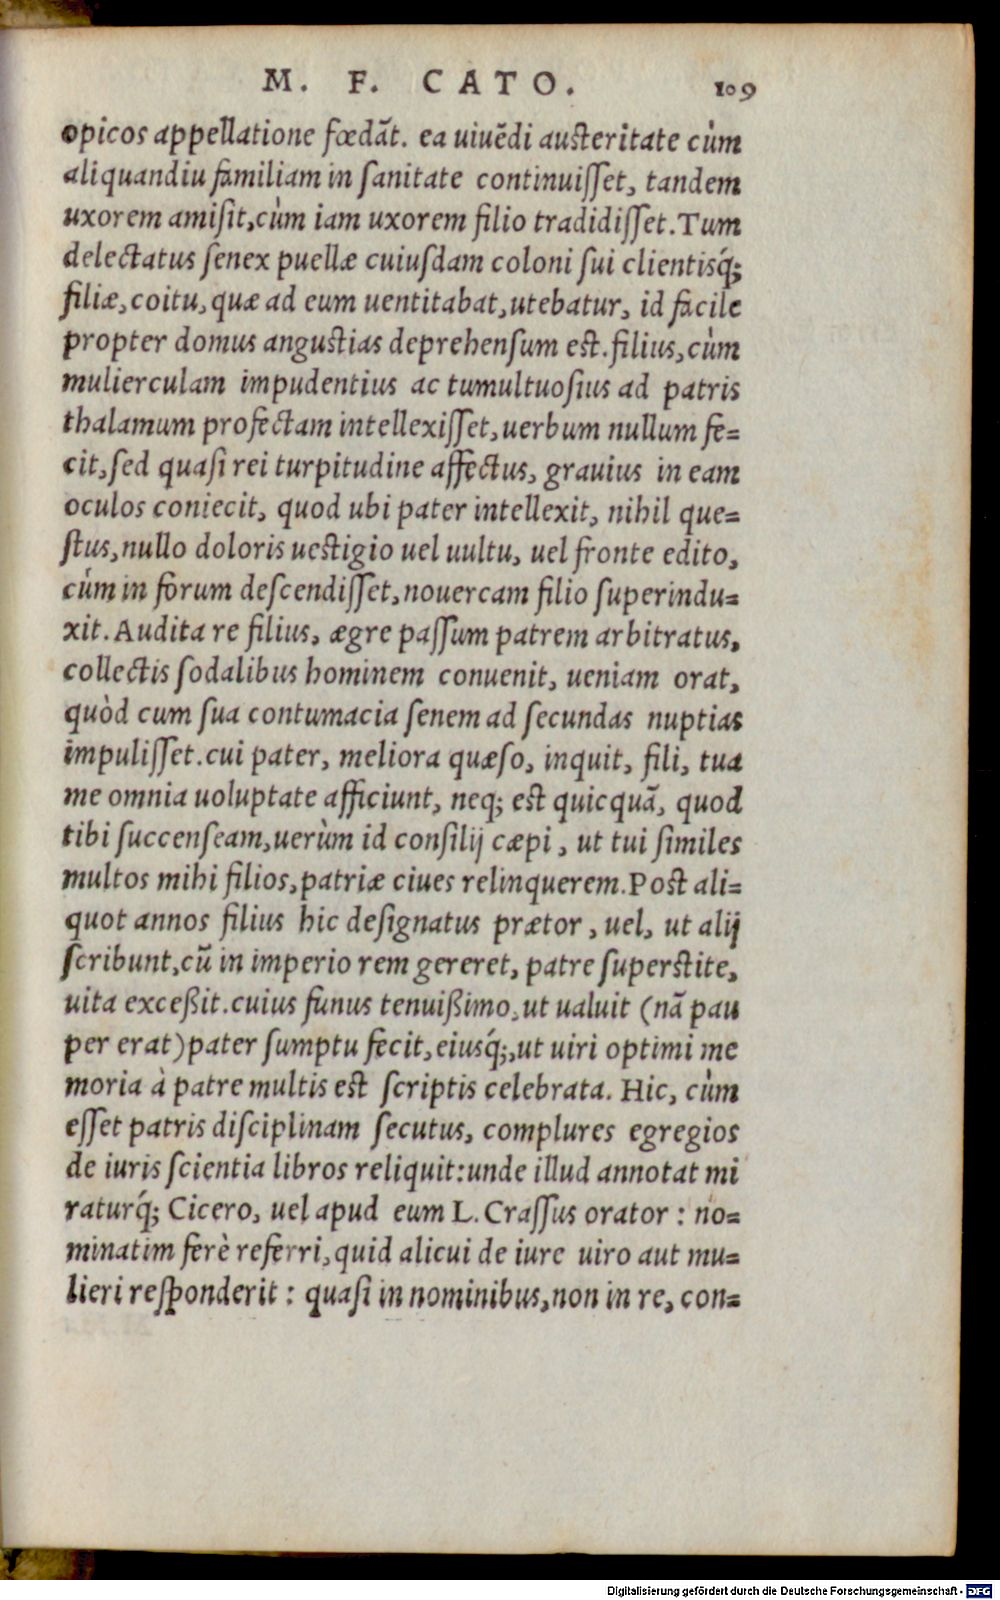 M. F. CATO. 109
opicos appellatione fœdãt. ea uiuẽdi austeritate cùm
aliquandiu familiam in sanitate continuisset, tandem
uxorem amisit, cùm iam uxorem filio tradidisset. Tum
delectatus senex puellæ cuiusdam coloni sui clientisq́;
filiæ, coitu, quæ ad eum uentitabat, utebatur, id facile
propter domus angustias deprehensum est. filius, cùm
mulierculam impudentius ac tumultuosius ad patris
thalamum profectam intellexisset, uerbum nullum fe=
cit, sed quasi rei turpitudine affectus, grauius in eam
oculos coniecit, quod ubi pater intellexit, nihil que=
stus, nullo doloris uestigio uel uultu, uel fronte edito,
cùm in forum descendisset, nouercam filio superindu=
xit. Audita re filius, ægre passum patrem arbitratus,
collectis sodalibus hominem conuenit, ueniam orat,
quòd cum sua contumacia senem ad secundas nuptias
impulisset. cui pater, meliora quæso, inquit, fili, tua
me omnia uoluptate afficiunt, neq; est quicquã, quod
tibi succenseam, uerùm id consilij cæpi, ut tui similes
multos mihi filios, patriæ ciues relinquerem. Post ali=
quot annos filius hic designatus prætor, uel, ut alij
scribunt, cũ in imperio rem gereret, patre superstite,
uita exceßit. cuius funus tenuißimo, ut ualuit (nã pau
per erat) pater sumptu fecit, eiusq́;, ut uiri optimi me
moria à patre multis est scriptis celebrata. Hic, cùm
esset patris disciplinam secutus, complures egregios
de iuris scientia libros reliquit: unde illud annotat mi
raturq́; Cicero, uel apud eum L. Crassus orator: no=
minatim ferè referri, quid alicui de iure uiro aut mu=
lieri responderit: quasi in nominibus, non in re, con=
Digitalisierung gefördert durch die Deutsche Forschungsgemeinschaft - DFG